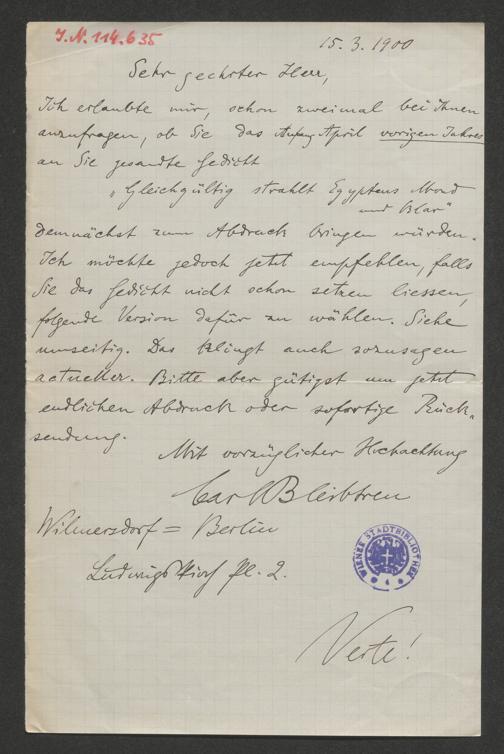 J.N. 114.635
15. 3. 1900
Sehr geehrter Herr,
Ich erlaubte mir, schon zweimal bei Ihnen
anzufragen, ob Sie das Anfang April vorigen Jahres
an Sie gesandte Gedicht
„Gleichgültig strahlt Egyptens Mond
und klar"
demnächst zum Abdruck bringen würden.
Ich möchte jedoch jetzt empfehlen, falls
Sie das Gedicht nicht schon setzen liessen,
folgende Version dafür zu wählen. Siehe
umseitig. Das klingt auch sozusagen
actueller. Bitte aber gütigst um jetzt
endlichen Abdruck oder sofortige Rück-
sendung.
Mit vorzüglicher Hochachtung
Carl Bleibtreu
Wilmersdorf = Berlin
Ludwigskirch Pl. 2.
WIENER STADTBIBLIOTHEK
Verte!